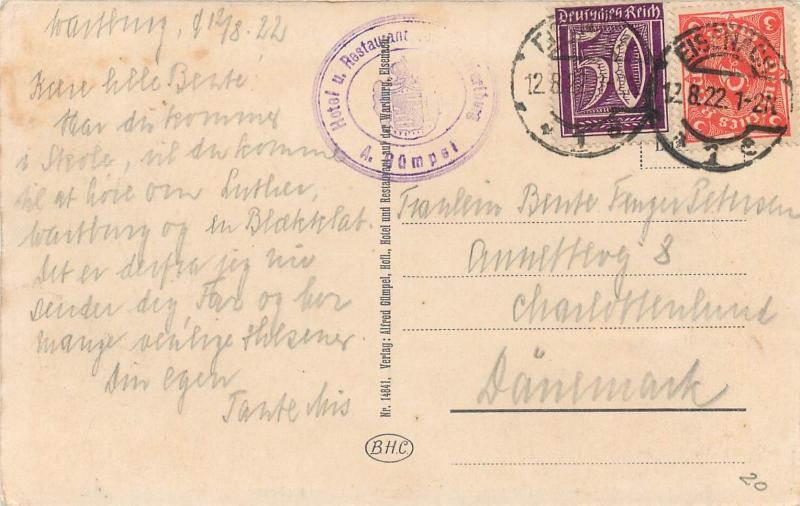 Wartburg, d 12/8. 22
Kære lille Bente!
Har du kommer
i Skole, vil du komme
til at høre om Luther,
Wartburg og en Blækklat.
Det er derfra jeg nu
sender dig, Far og
mange venlige Hilsener.
Din egen
Tante Mis
Hotel u. Restaurant
Wartburg
A. Gümpel
Nr. 14841, Verlag: Alfred Gümpel, Hofl., Hotel und Restaurant auf der Wartburg, Eisenach
B.H.C.
Deutsches Reich
50
12.8.22
EISENACH
12.8.22. 1-2N
* 1 c
Fräulein Bente Fenger Petersen
Annettevej 8
Charlottenlund
Dänemark
20